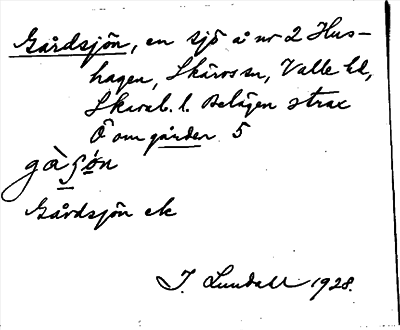 Gårdsjön, en sjö å nr 2 Hus-
hagen, Skärvs sn, Valle hd,
Skarab. l. Belägen strax
Ö om gården 5
Gårdsjön ek
J. Lundahl 1928.